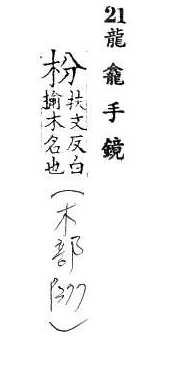 21 龍龕手鏡
枌扶文反白
榆木名也
(木部
P377)